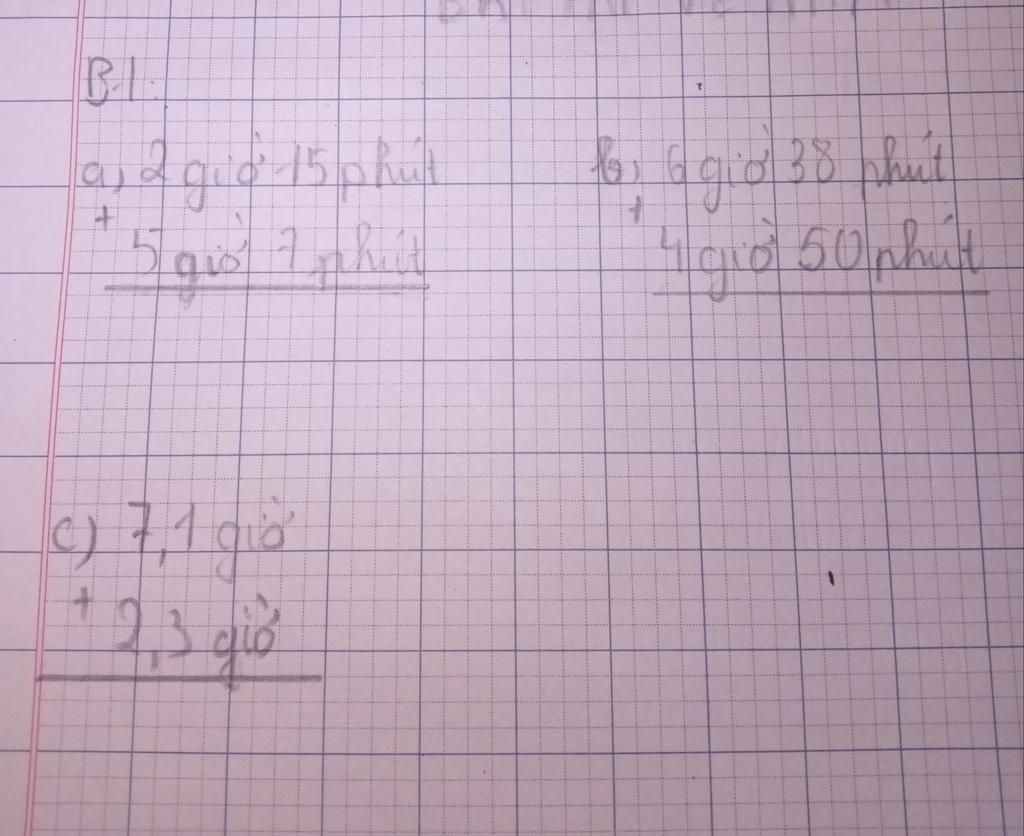 B.1:
a, 2 giờ 15 phút
+
5 giờ 7 phút
b, 6 giờ 38 phút
+
4 giờ 50 phút
c) 7,1 giờ
+
2,3 giờ